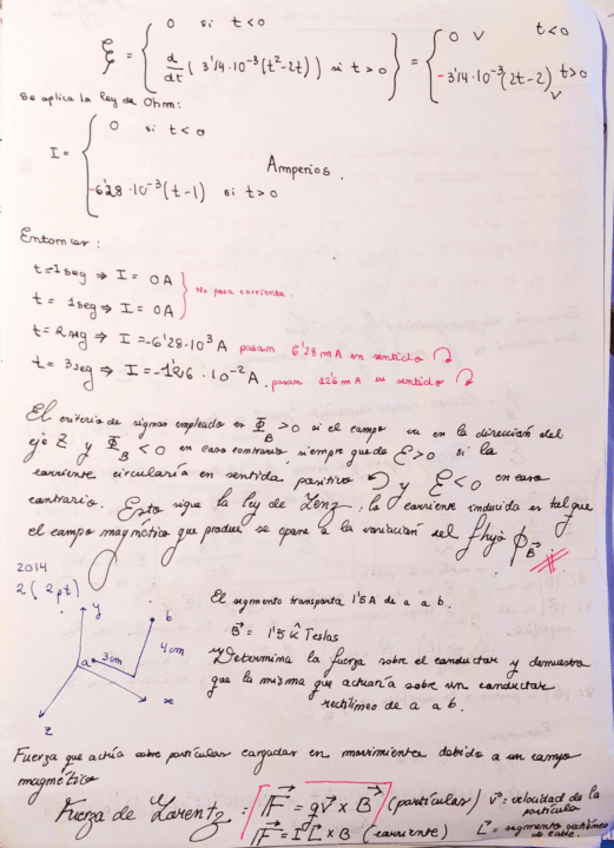 ξ = { 0 si t<0 ; d/dt ( 3'14·10⁻³(t²-2t) ) si t>0 } = { 0 V t<0 ; -3'14·10⁻³(2t-2) V t>0
Se aplica la ley de Ohm:
I = { 0 si t<0 ; -6'28·10⁻³(t-1) si t>0 Amperios.
Entonces:
t=1seg ⇒ I = 0A
t= 1seg ⇒ I = 0A } No pasa corriente.
t= 2seg ⇒ I=-6'28·10³ A pasam 6'28 mA en sentido ↷
t= 3seg ⇒ I=-1'26·10⁻² A. pasam 12'6 mA en sentido ↷
El criterio de signos empleado es Φ_B>0 si el campo va en la dirección del
eje Z y Φ_B<0 en caso contrario, siempre que de Ɛ>0 si la
corriente circularía en sentido positivo ↺ y Ɛ<0 en caso
contrario. Esto sigue la ley de Lenz, la corriente inducida es tal que
el campo magnético que produce se opone a la variación del flujo ϕ_B⃗.
2014
2 ( 2pt)
y
b
4cm
a
3cm
x
z
El segmento transporta 1'5A de a a b.
B⃗ = 1'5 k̂ Teslas
Determina la fuerza sobre el conductor y demuestra
que la misma que actuaría sobre un conductor
rectilíneo de a a b.
Fuerza que actúa sobre partículas cargadas en movimiento debido a un campo
magnético
Fuerza de Lorentz: F⃗ = qv⃗ x B⃗ (partículas) v⃗: velocidad de la partícula
F⃗ = I L⃗ x B (corriente) L⃗ = segmento rectilíneo de cable.